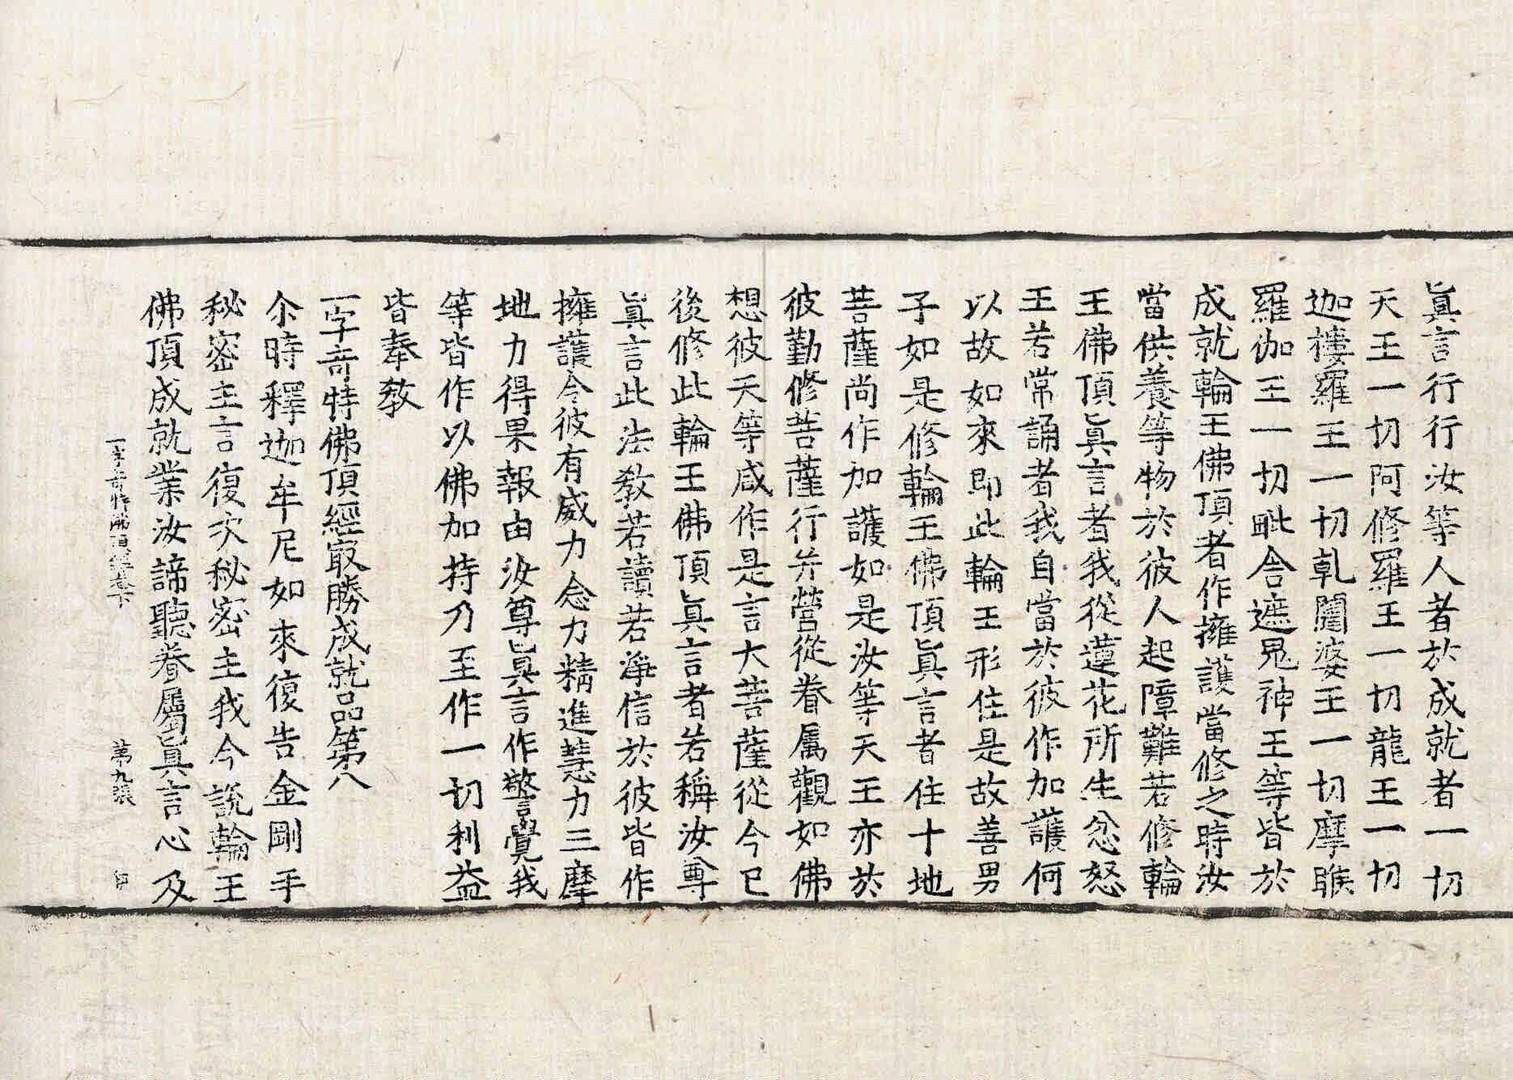 眞言行行汝等人者於成就者一切
天王一切阿修羅王一切龍王一切
迦樓羅王一切乹闥婆王一切摩睺
羅伽王一切毗舍遮鬼神王等皆於
成就輪王佛頂者作擁護當修之時汝
當供養等物於彼人起障難若修輪
王佛頂眞言者我從蓮花所生忿怒
王若常誦者我自當於彼作加護何
以故如來即此輪王形住是故善男
子如是修輪王佛頂眞言者住十地
菩薩尚作加護如是汝等天王亦於
彼勤修菩薩行并營從眷属觀如佛
想彼天等咸作是言大菩薩從今已
後修此輪王佛頂眞言者若稱汝尊
眞言此法教若讀若淨信於彼皆作
擁護令彼有威力念力精進慧力三摩
地力得果報由汝尊眞言作警覺我
等皆作以佛加持乃至作一切利益
皆奉教
一字奇特佛頂經㝡勝成就品第八
尒時釋迦牟尼如來復告金剛手
秘密主言復次秘密主我今說輪王
佛頂成就業汝諦聽眷屬眞言心及
一字奇特佛頂經卷下 第九張 伊